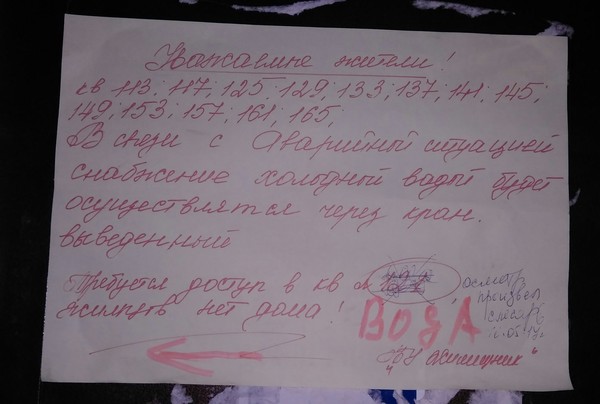 Уважаемые жители!
кв 113; 117; 125; 129; 133; 137; 141; 145;
149; 153; 157; 161; 165;
В связи с Аварийной ситуацией
снабжение холодной водой будет
осуществлятся через кран.
выведенный
Требуется доступ в кв
жильцов нет дома!
осмотр
произвел
слесарь
ВОДА
"Жилищник"